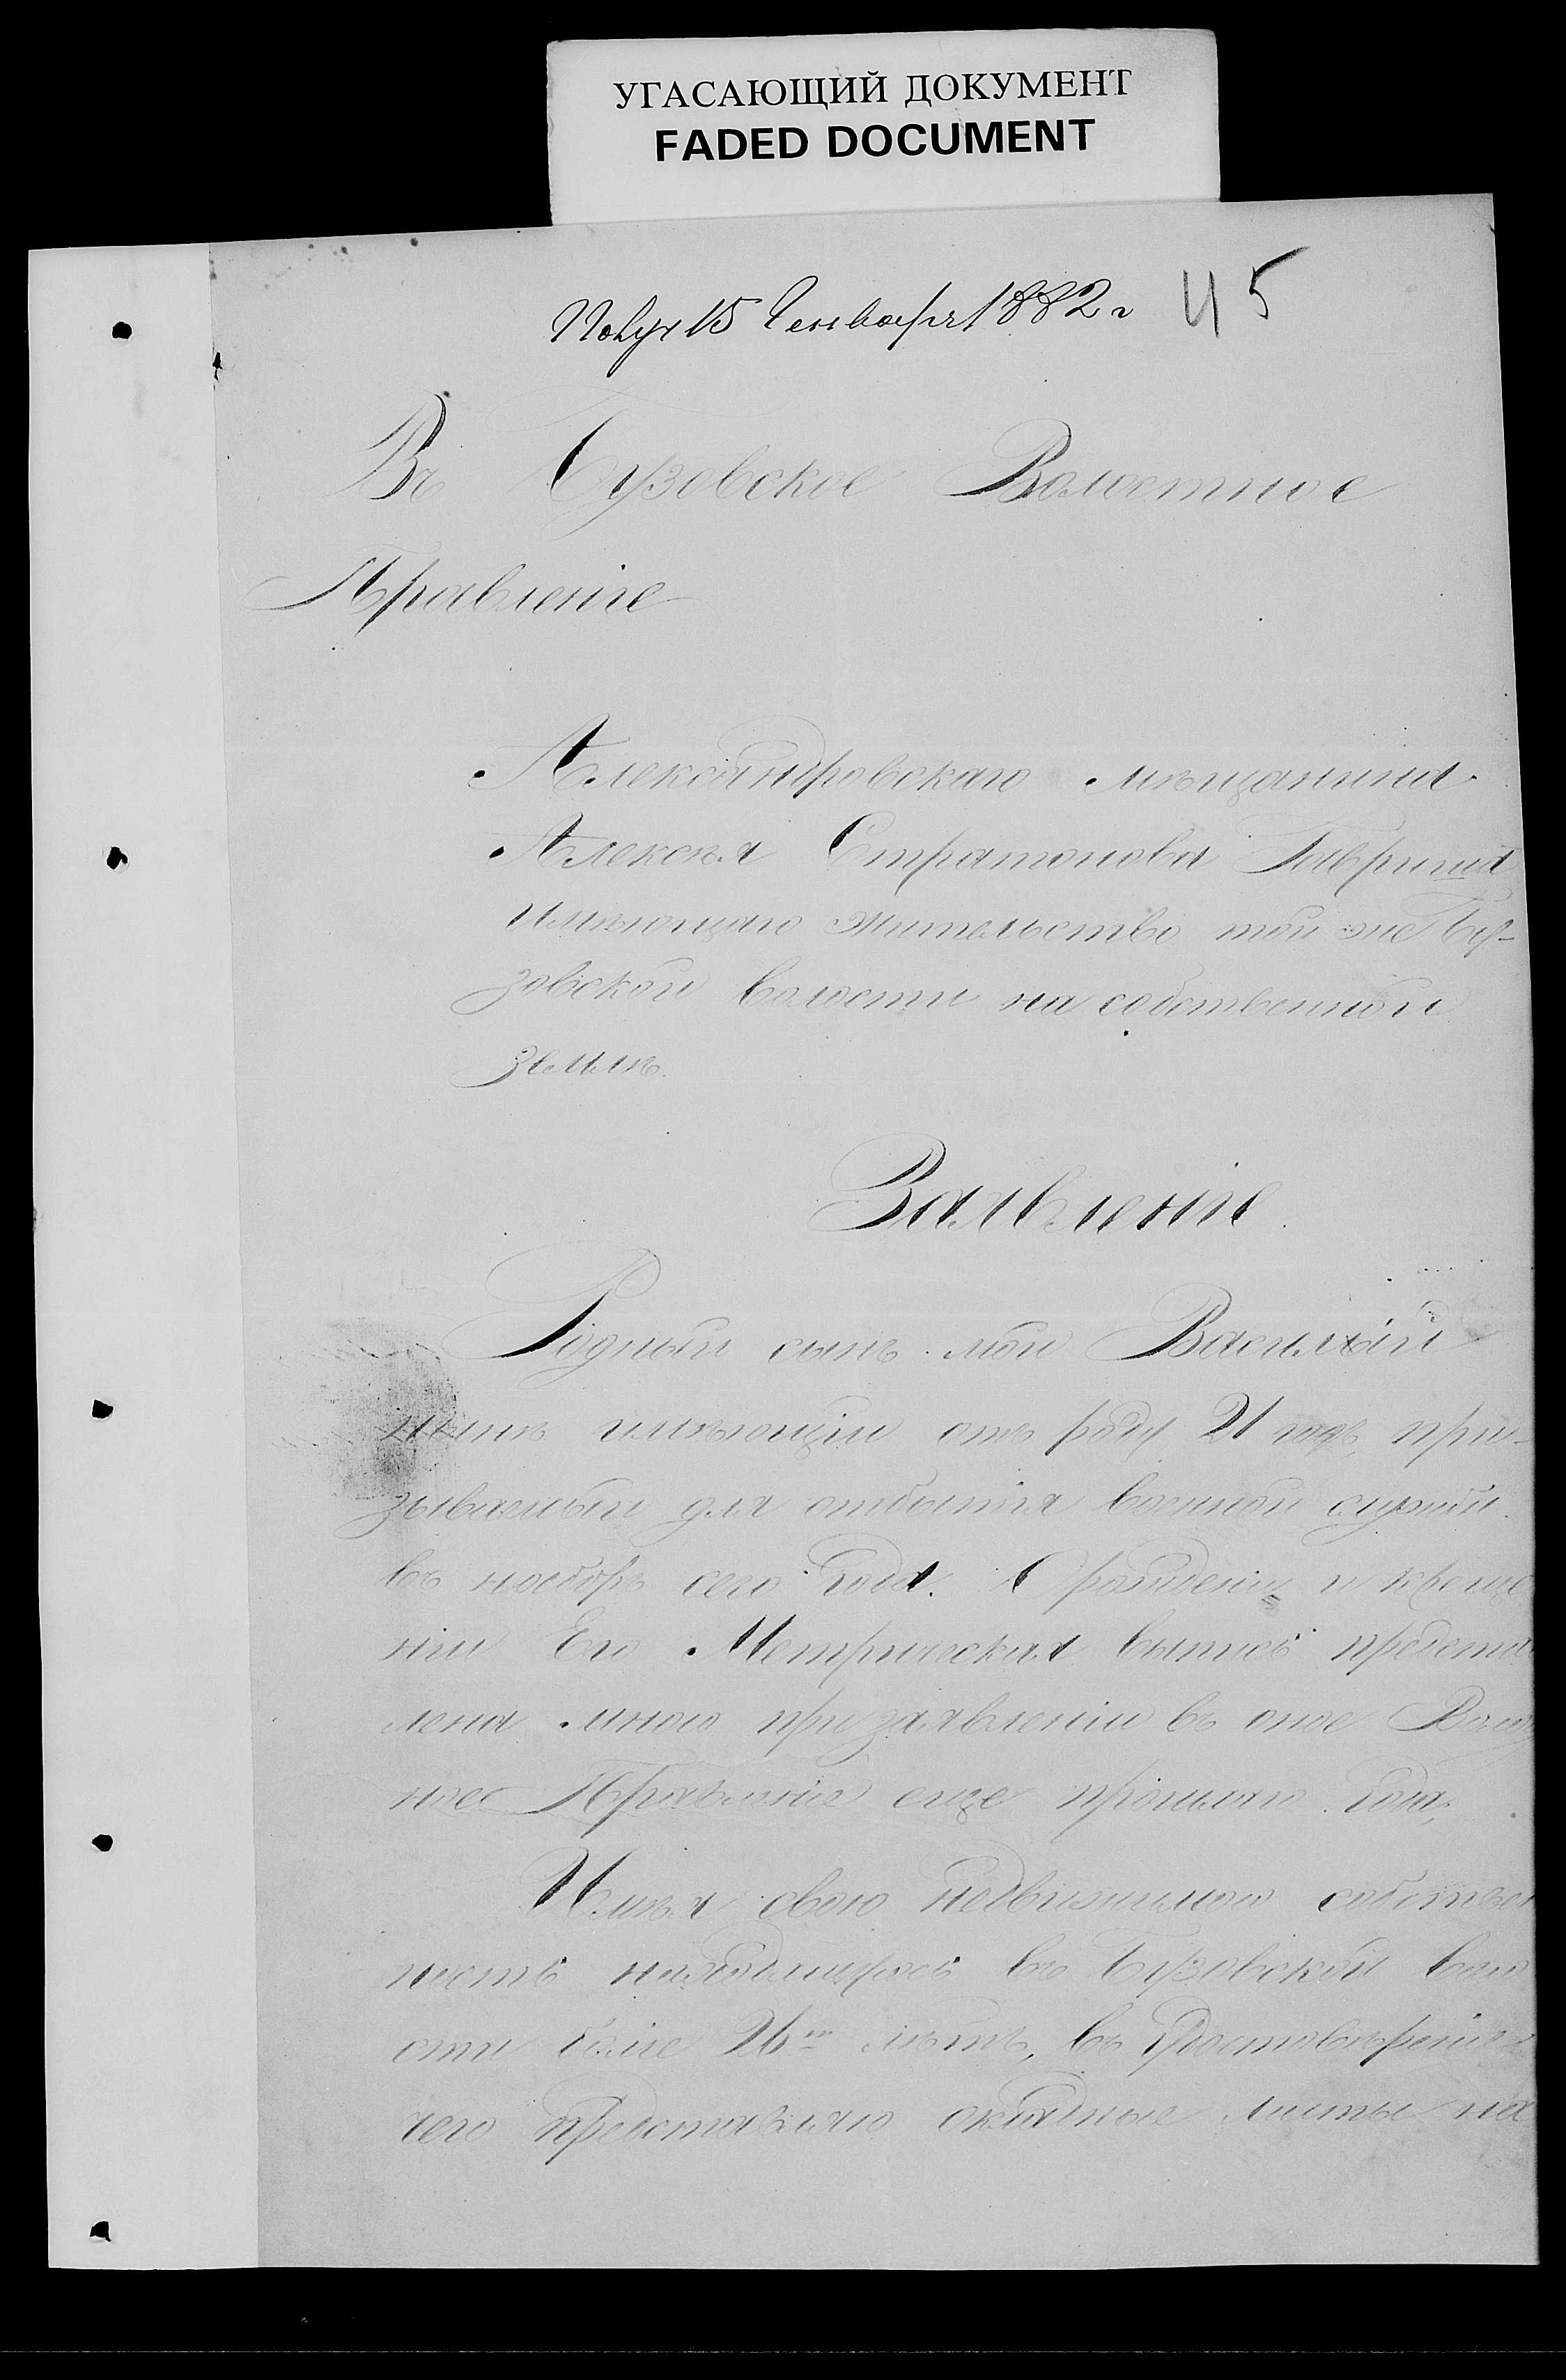 УГАСАЮЩИЙ ДОКУМЕНТ
FADED DOCUMENT
Получ 15 Генваря 1882 г 45
Въ Бузовское Волостное
Правленіе
Александровскаго мѣщанина
Алексѣя Стратонова
имѣющаго жительство той же Бу-
зовской волости на собственной
землѣ.
Заявленіе
Родный сынъ мой Василій
нынѣ имѣющій отъ роду 21 годъ, при-
зываемый для отбытія военной службы
въ ноебрѣ сего года. О рожденіи и креще
ніи Его Метрическая выпись предста
лена мною при заявленіи въ оное Волос
ное Правленіе еще прошлаго года,
Имѣя свою недвижимою собствен
ность находящуюсь въ Бузовской воло
сти боліе лѣтъ, въ удостовѣреніе
чего представляю окладные листы на